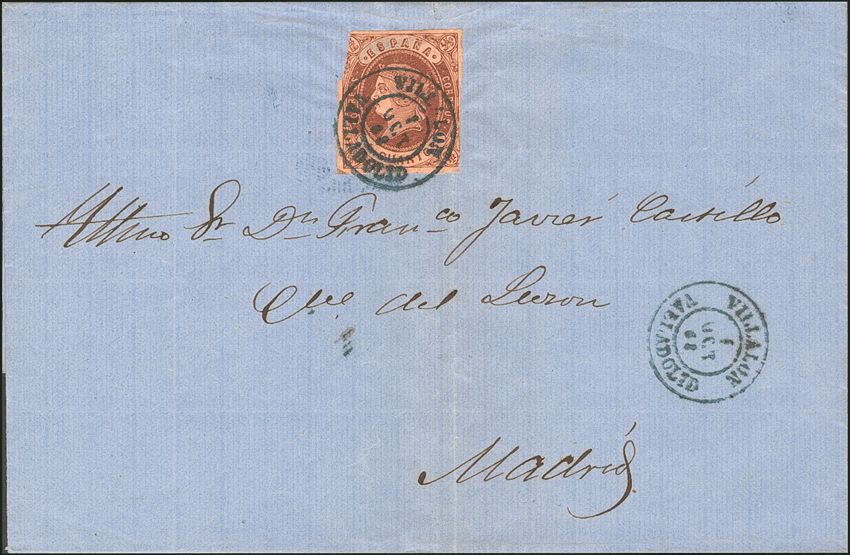 ESPAÑA
VILLALON
1
OCT
VALLADOLID
Yltmo Sr. Dn. Franco Javier Castillo
Clle. del Luzon
VILLALON
1
OCT
62
VALLADOLID
Madrid